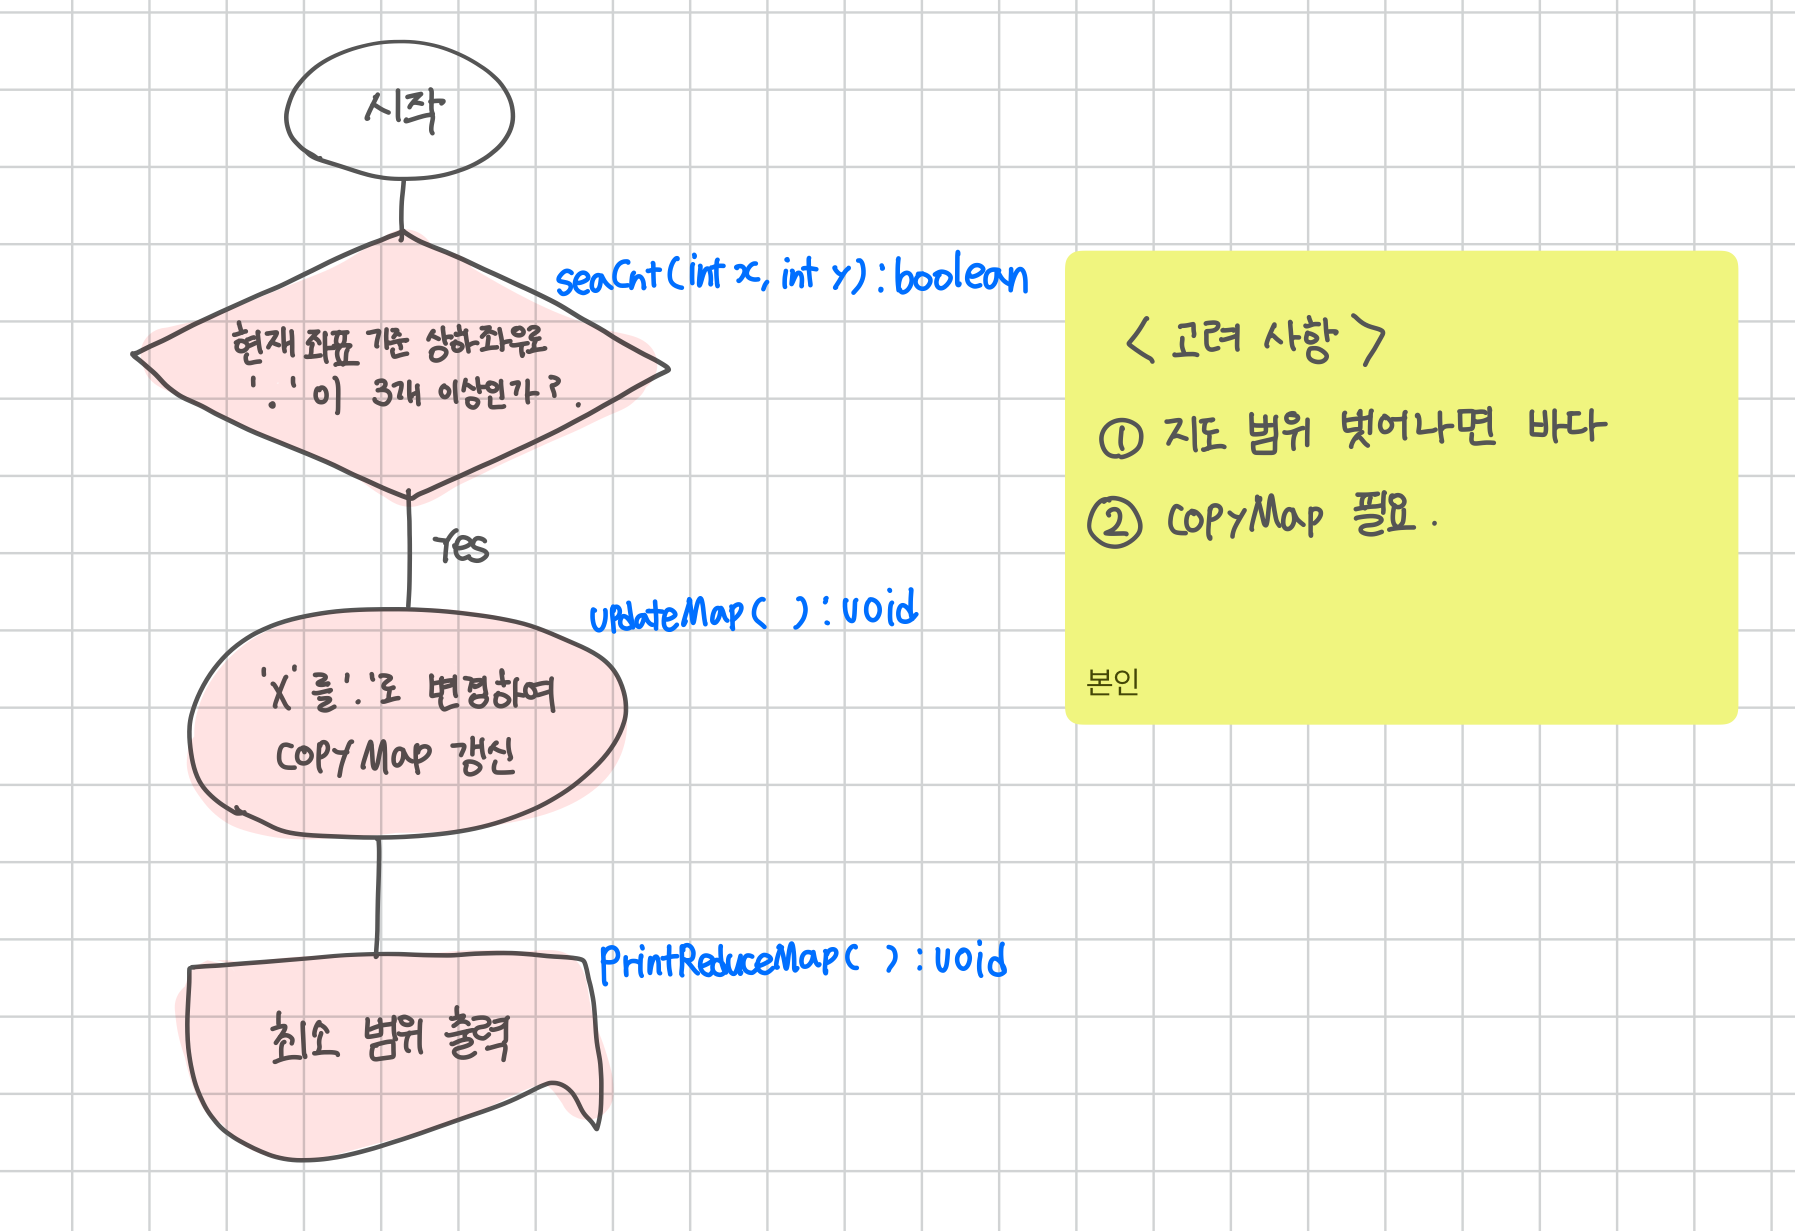 시작
seaCnt(int x, int y) : boolean
현재 좌표 기준 상하좌우로
'.' 이 3개 이상인가?.
Yes
updateMap( ) : void
'X'를 '.'로 변경하여
copyMap 갱신
printReduceMap( ) : void
최소 범위 출력
< 고려 사항 >
① 지도 범위 벗어나면 바다
② copyMap 필요.
본인